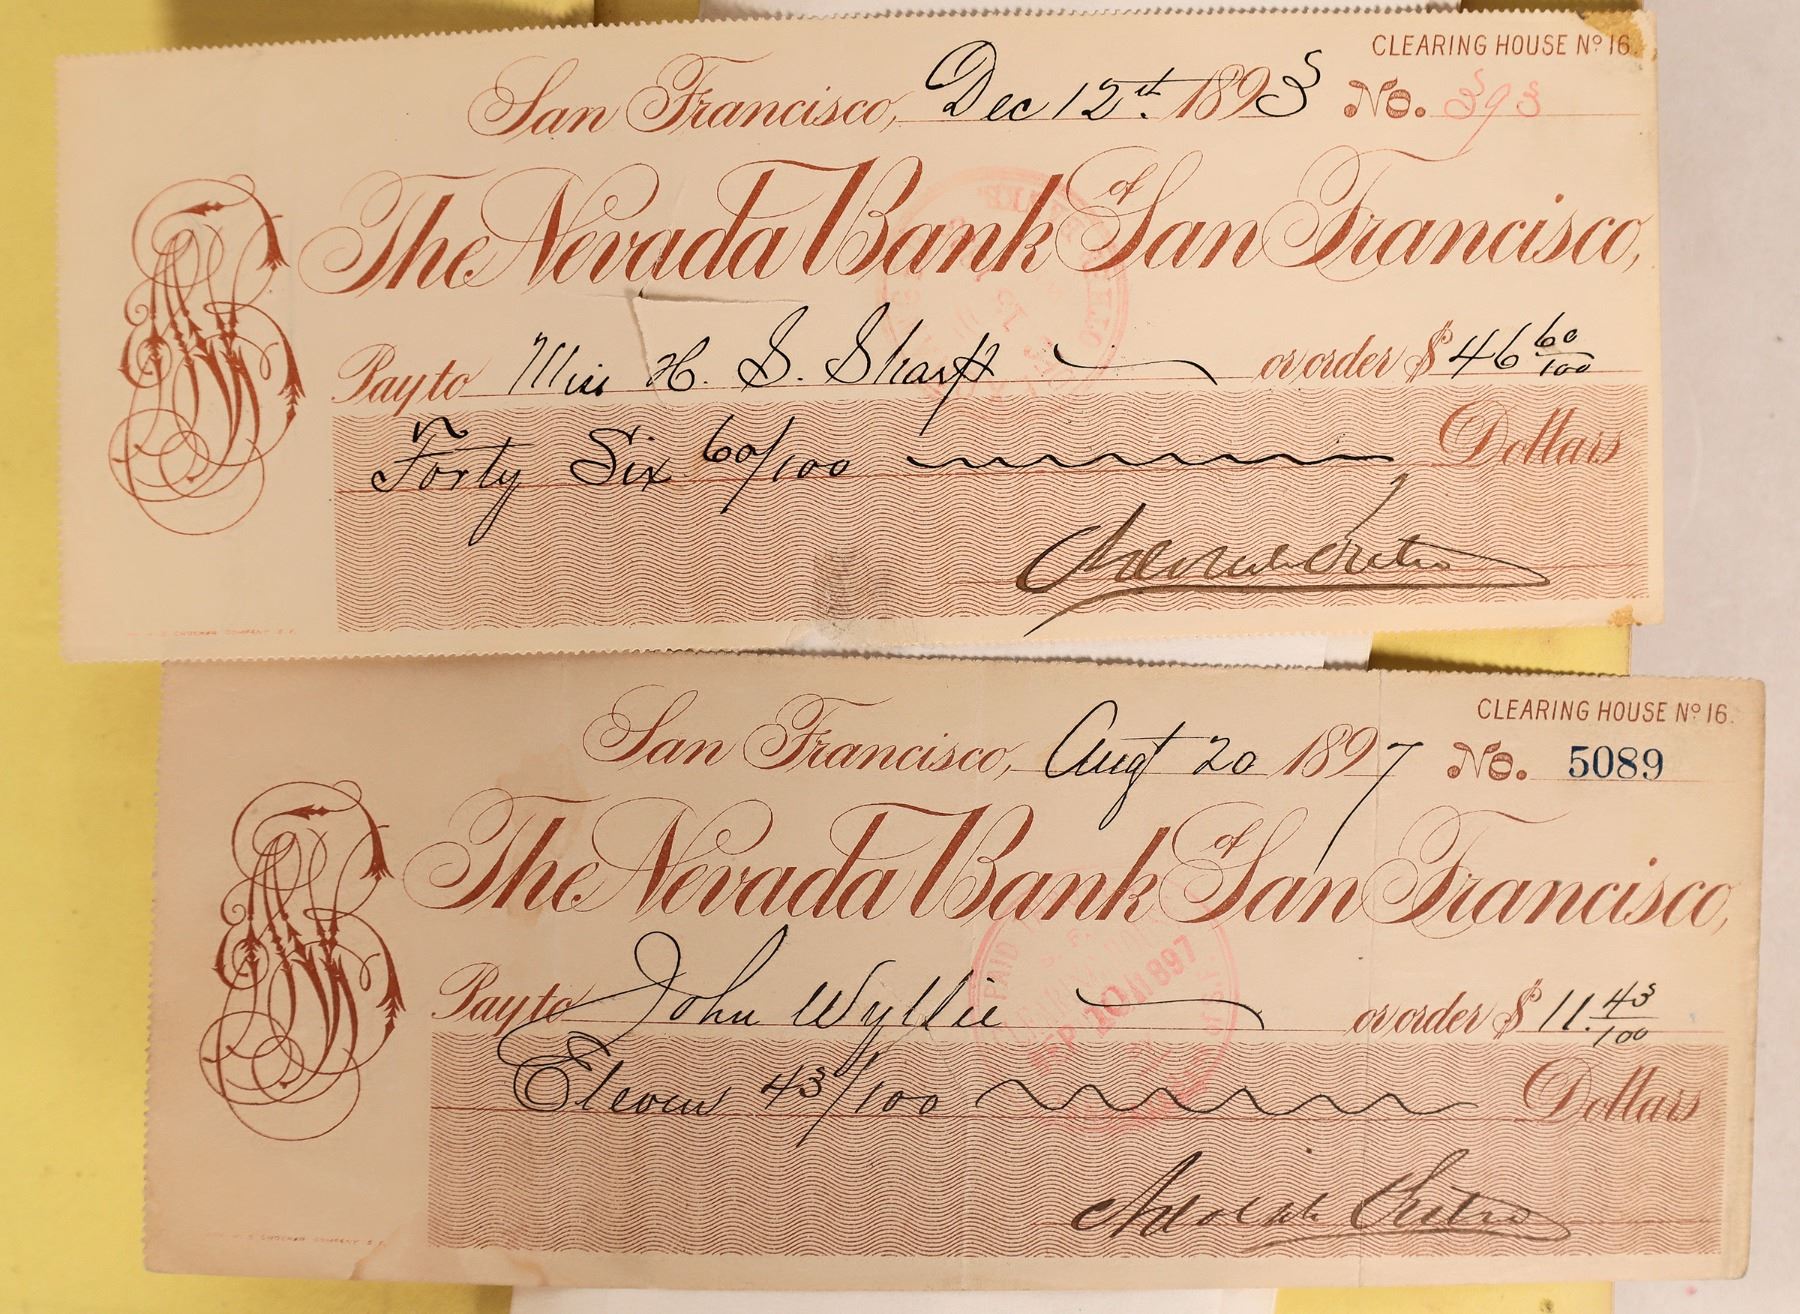 CLEARING HOUSE No 16.
San Francisco, Dec 12th. 1893 No. 393
The Nevada Bank of San Francisco,
Pay to Miss H. S. Sharp or order $ 46 60/100
Forty Six 60/100 Dollars
Adolph Sutro
CLEARING HOUSE No 16.
San Francisco, Augt 20 1897 No. 5089
The Nevada Bank of San Francisco,
Pay to John Wyllie or order $ 11. 43/100
PAID
SEP 10 1897
Eleven 43/100 Dollars
Adolph Sutro